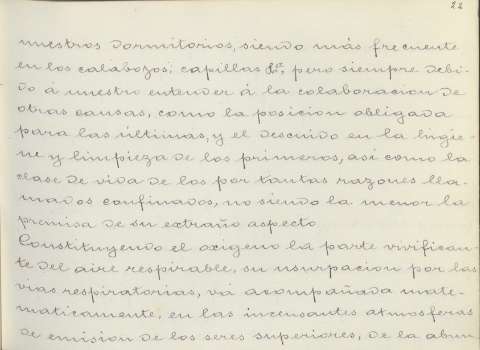 22
nuestros dormitorios, siendo más frecuente
en los calabozos, capillas &ª, pero siempre debi-
do á nuestro entender á la colaboracion de
otras causas, como la posicion obligada
para las últimas, y el descuido en la higie-
ne y limpieza de los primeros, asi como la
clase de vida de los por tantas razones lla-
mados confinados, no siendo la menor la
premisa de su extraño aspecto
Constituyendo el oxigeno la parte vivifican-
te del aire respirable, su usurpacion por las
vias respiratorias, vá acompañada mate-
maticamente, en las incensantes atmosferas
de emision de los seres superiores, de la abun